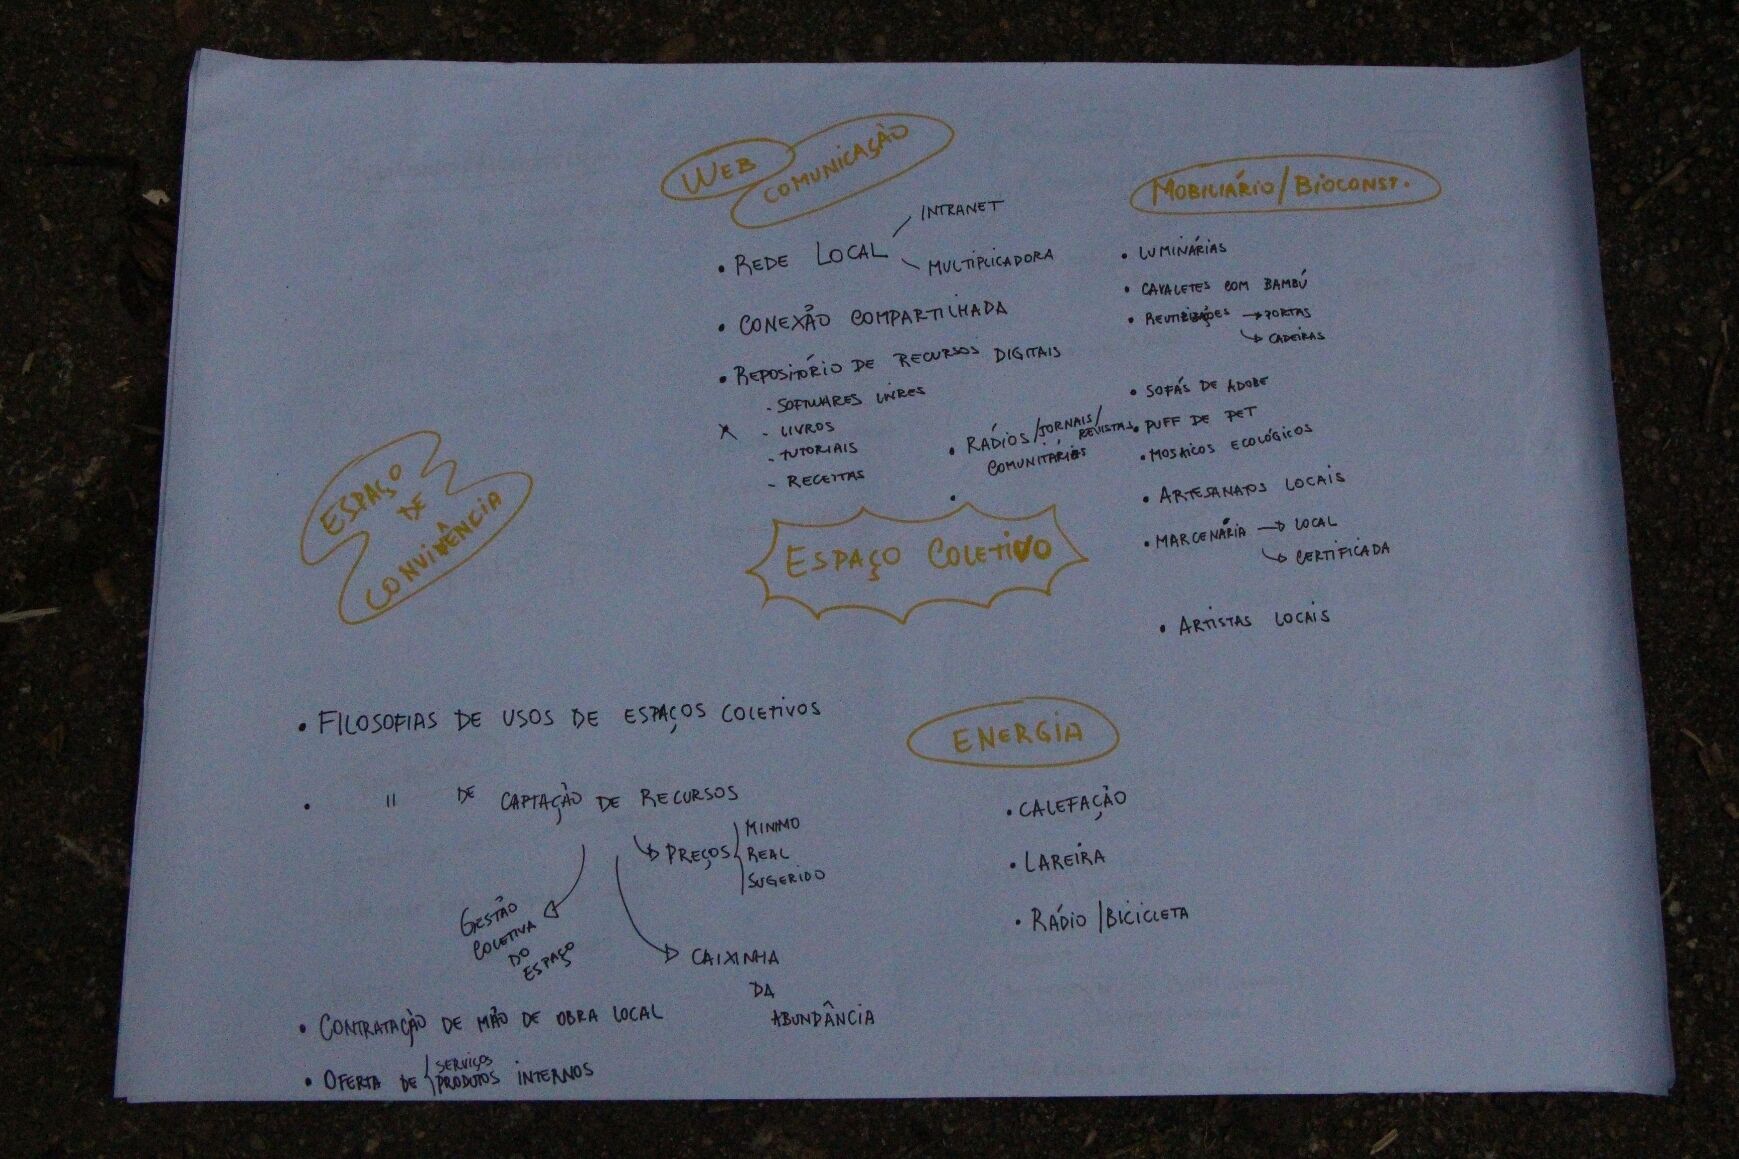 WEB
COMUNICAÇÃO
• REDE LOCAL
INTRANET
MULTIPLICADORA
• CONEXÃO COMPARTILHADA
• REPOSITÓRIO DE RECURSOS DIGITAIS
- SOFTWARES LIVRES
- LIVROS
- TUTORIAIS
- RECEITAS
• RÁDIOS/JORNAIS/
REVISTAS
COMUNITÁRIOS
•
MOBILIÁRIO/BIOCONST.
• LUMINÁRIAS
• CAVALETES COM BAMBÚ
• REUTILIZAÇÕES → PORTAS
→ CADEIRAS
• SOFÁS DE ADOBE
• PUFF DE PET
• MOSAICOS ECOLÓGICOS
• ARTESANATOS LOCAIS
• MARCENÁRIA → LOCAL
→ CERTIFICADA
• ARTISTAS LOCAIS
ESPAÇO
DE
CONVIVÊNCIA
ESPAÇO COLETIVO
• FILOSOFIAS DE USOS DE ESPAÇOS COLETIVOS
• " DE CAPTAÇÃO DE RECURSOS
→ PREÇOS
MINIMO
REAL
SUGERIDO
GESTÃO
COLETIVA
DO
ESPAÇO
CAIXINHA
DA
ABUNDÂNCIA
• CONTRATAÇÃO DE MÃO DE OBRA LOCAL
• OFERTA DE
SERVIÇOS
PRODUTOS INTERNOS
ENERGIA
• CALEFAÇÃO
• LAREIRA
• RÁDIO/BICICLETA